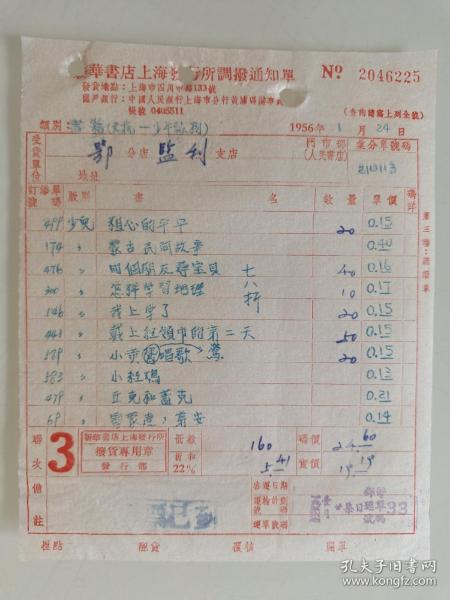 新華書店上海發行所調撥通知單 № 2046225
發貨地點：上海市四川中路133號
開戶銀行：中國人民銀行上海市分行黃浦區辦事處
帳號 0405511 （查詢請寫上列全號）
類別： 1956年 1月24日
受貨單位 鄂 分店 監利 支店 門市部（人民書店） 業分單號碼
地址
訂單號碼 版別 書名 數量 單價
499 少兒 粗心的平平 20 0.15
174 〃 蒙古民間故事 0.40
476 〃 四個朋友尋宝貝 40 0.16
300 〃 怎样学習地理 10 0.17
146 〃 我上学了 20 0.15
441 〃 戴上紅領巾的第二天 50 0.15
579 〃 小黄鶯唱歌 20 0.15
583 〃 小紅瑪 0.13
479 〃 丘克和蓋克 0.21
68 〃 0.14
七八折
聯次 3
新華書店上海發行所
撥貨專用章
發行部
冊數 160 碼價 24.60
折扣 22% 5.41 實價 19.19
備註
客運日期
運輸計劃號碼
運單號碼
郵寄運單號碼 33
記
復核 開單
孔夫子旧书网